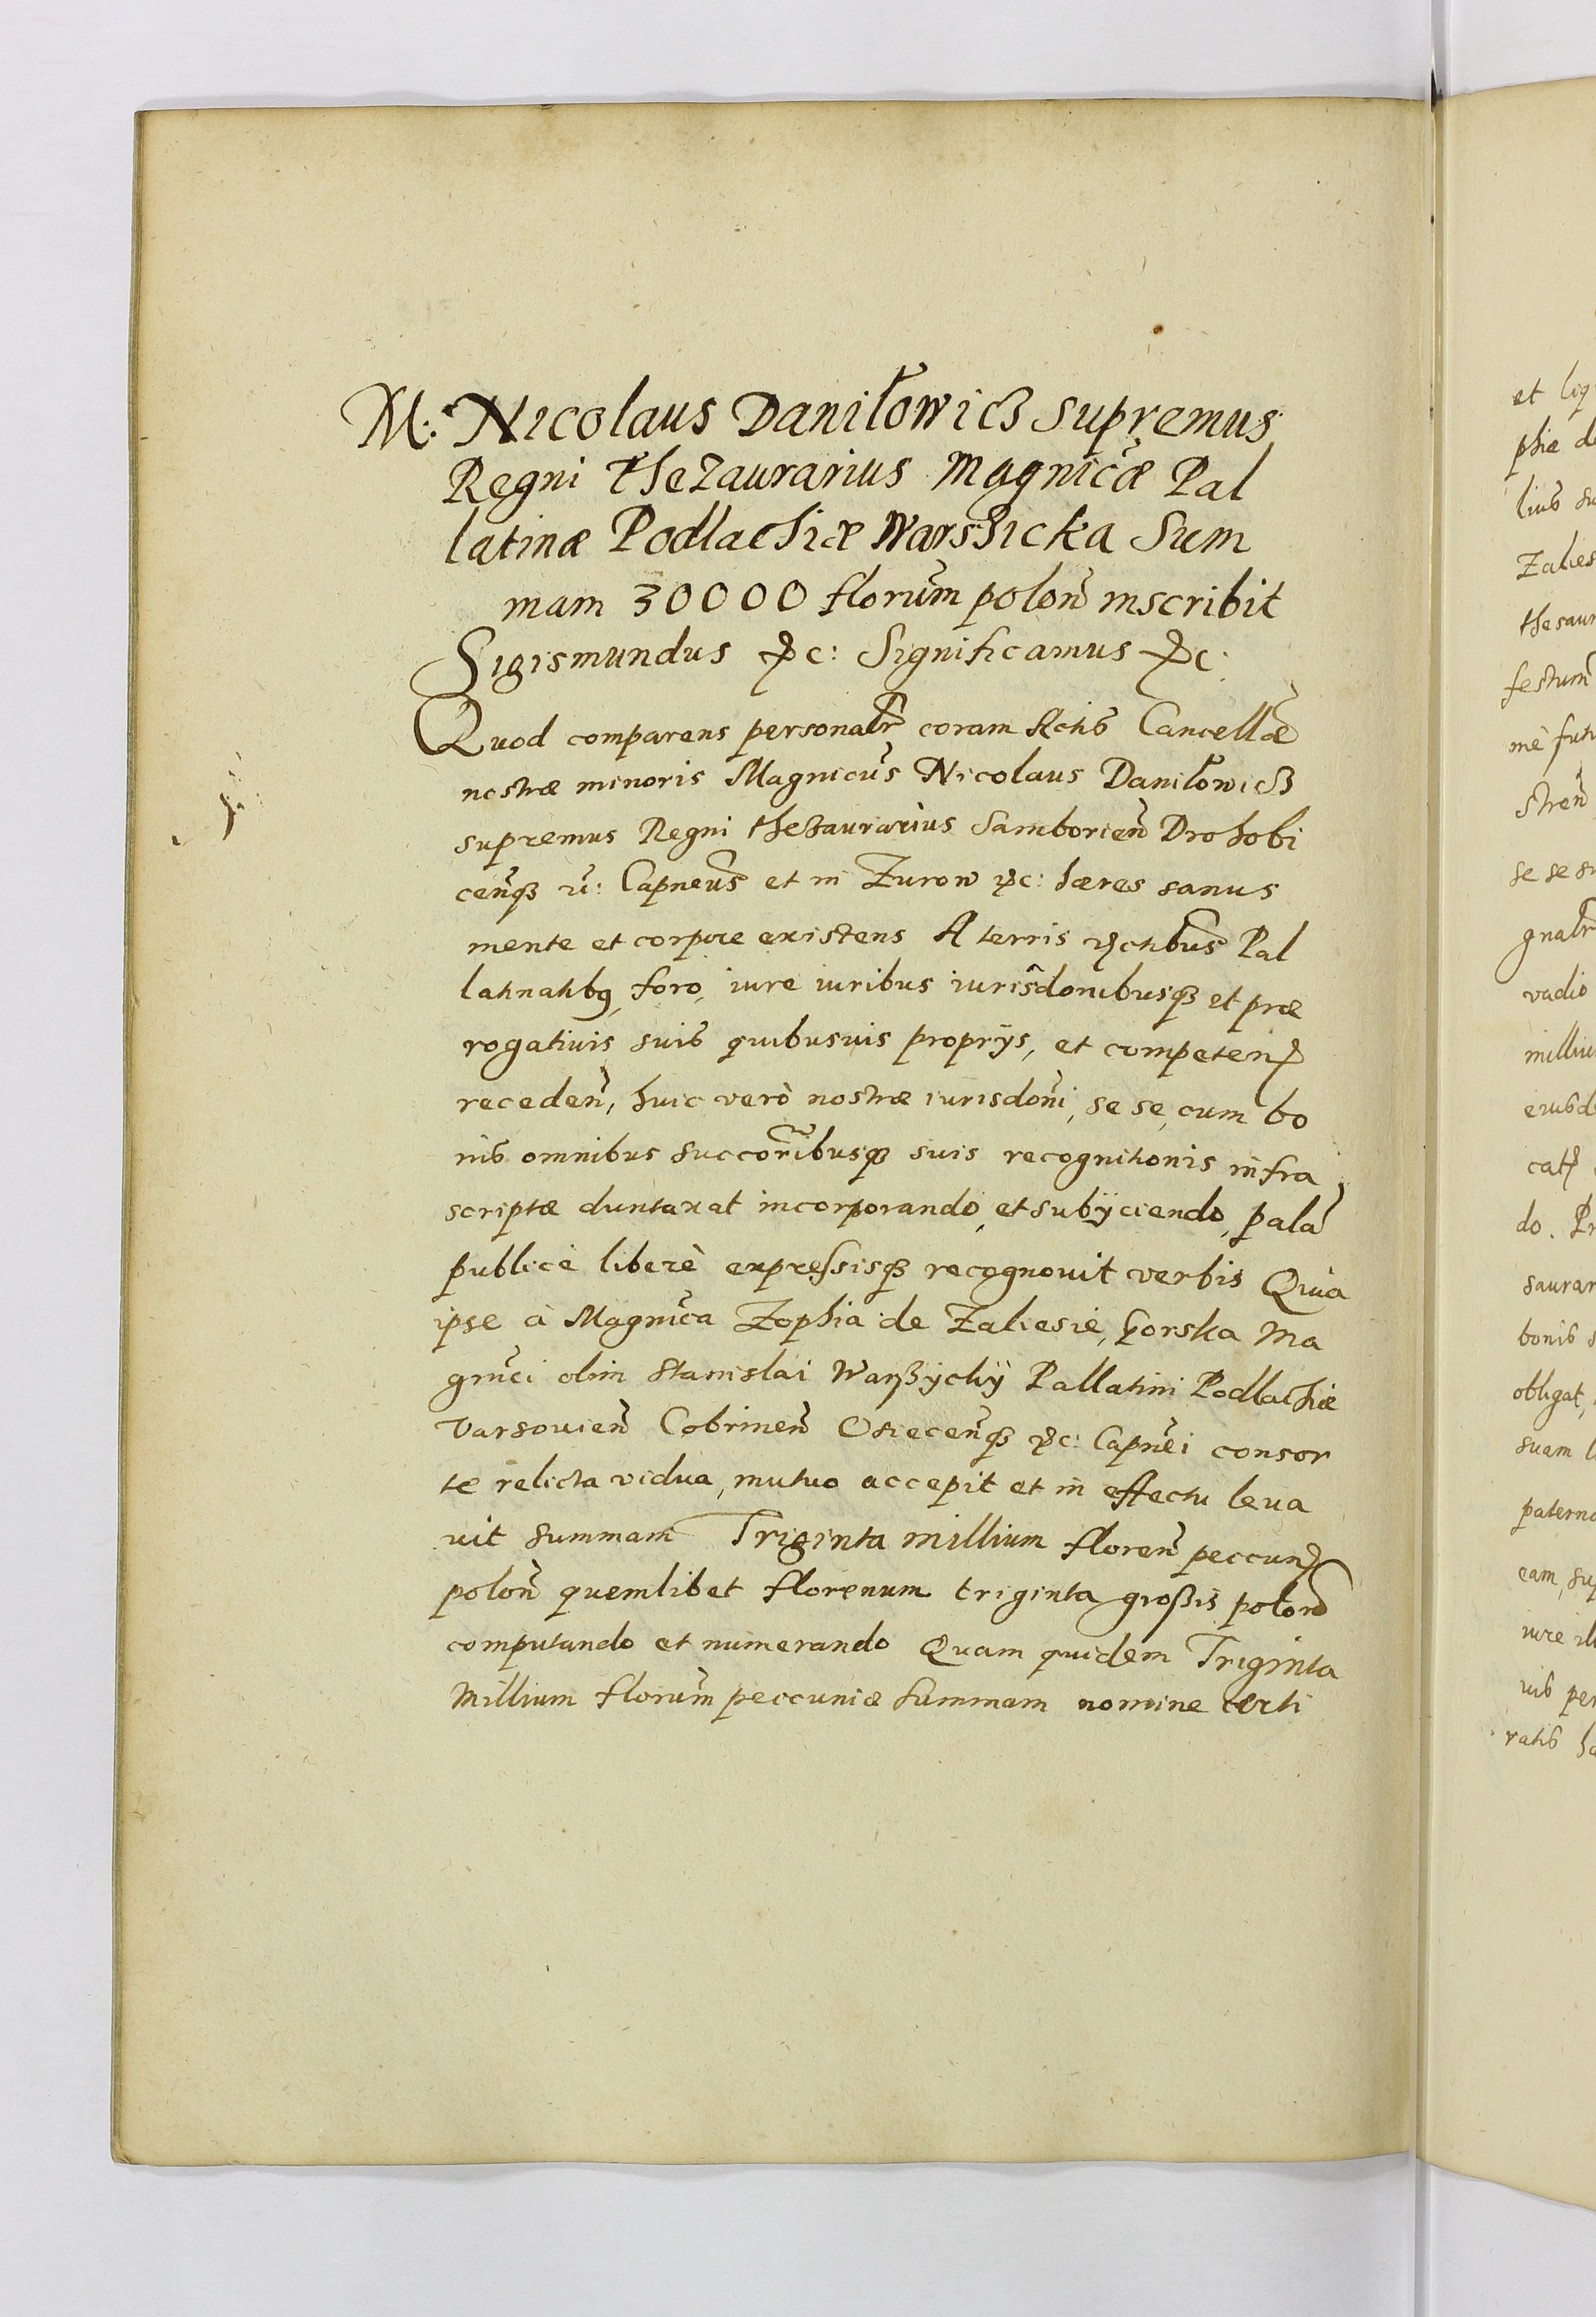 M: Nicolaus Daniłowicz supremus
Regni thezaurarius Magnĩcæ Pal
latinæ Podlachiæ Warszicka Sum
mam 30000 florum̃ polon̄ inscribit
Sigismundus &c: Significamus &c.
Quod comparens personalr̃ coram Actis Cancellæ̃
nostræ minoris Magnicus̃ Nicolaus Daniłowicz
supremus Regni thezaurarius Samborien̄ Drohobi
cen̄q3 &: Capneus̃ et in Zurow &c: hæres sanus
mente et corpore existens A terris &ctibus̃ Pal
latinatibq foro, iure iuribus iuris̃donibusq3 et præ
rogativis suis quibusuis proprijs, et competen
receden̄, huic verò nostræ iurisdonī, se se, cum bo
nis omnibus succorib̃usq3 suis recognitionis infra
scriptæ duntaxat incorporando, et subijciendo, palã
publicè liberè expressisq3 recognouit verbis Quia
ipse à Magnĩca Zophia de Zaliesie, Gorska Ma
gnĩci olim Stanislai Warszyckij Pallatini Podlachiæ
Varsouien̄ Cobrinen̄ Osiecen̄q3 &c: Capneĩ consor
te relicta vidua, mutuo accepit et in effectu leua
uit summam Triginta millium floren̄ peccun
polon̄ quemlibet florenum triginta großis polon̄
computando et numerando Quam quidem Triginta
Millium florum̃ peccuniæ summam nomine certi
et liq
phiæ d
lius su
Zalies
thesaur
festum̃
mè fut
stren̄
se se su
gnalr̃
vadio
milliu
eiusd
cat
do. Pr
saurar
bonis s
obligat,
suam l
paterno
eam, sup
iure il
uis per
ratis ha